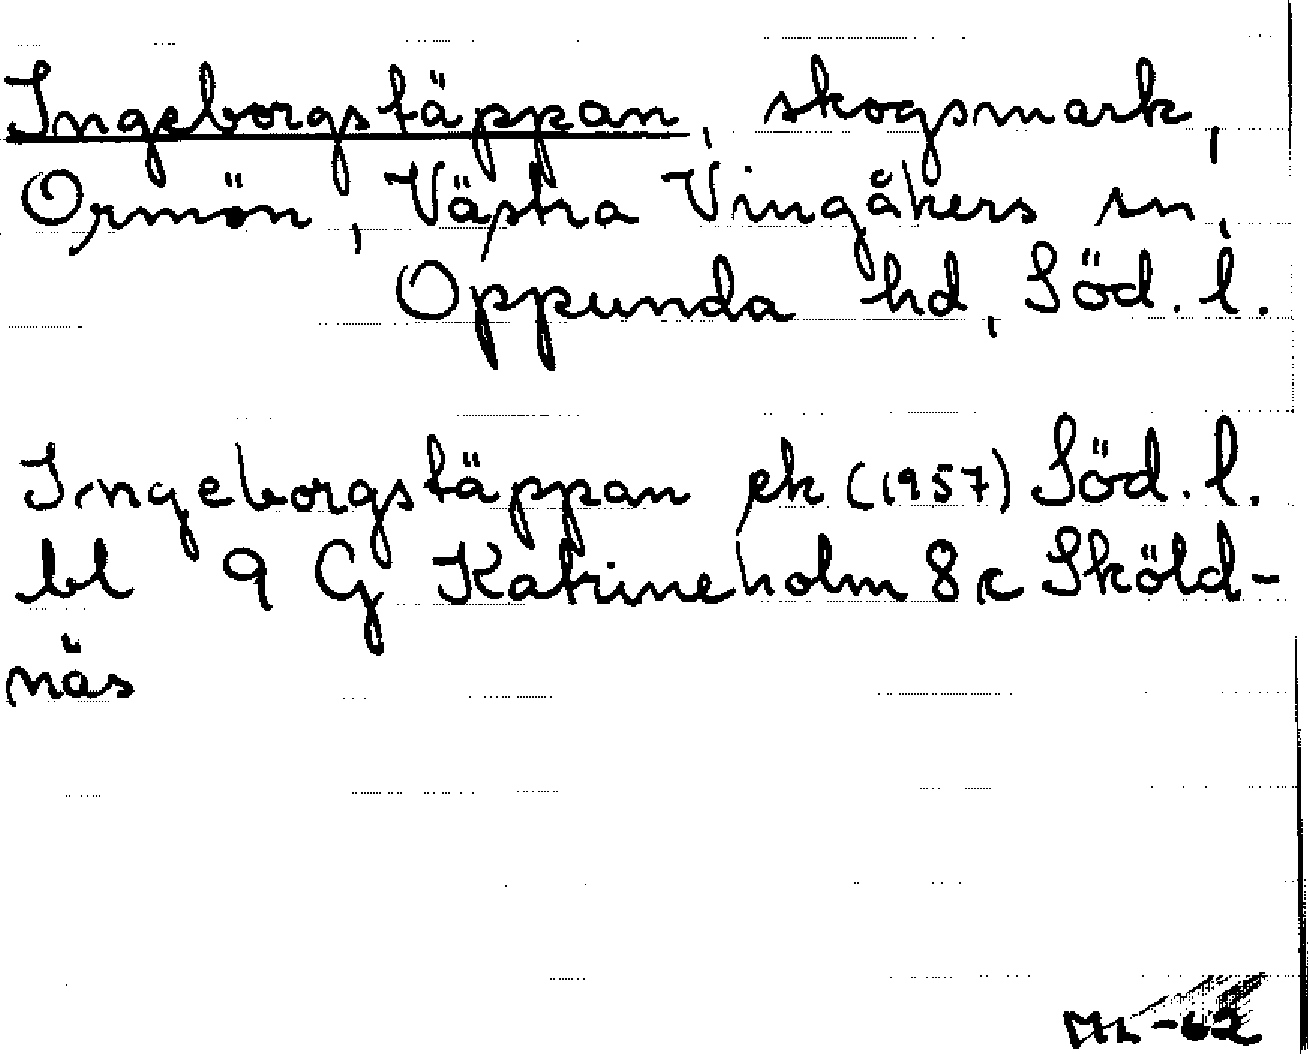 Ingeborgstäppan, skogsmark,
Ormön, Västra Vingåkers sn,
Oppunda hd, Söd. l.
Ingeborgstäppan ek (1957) Söd. l.
bl 9 G Katrineholm 8 c Sköld-
näs